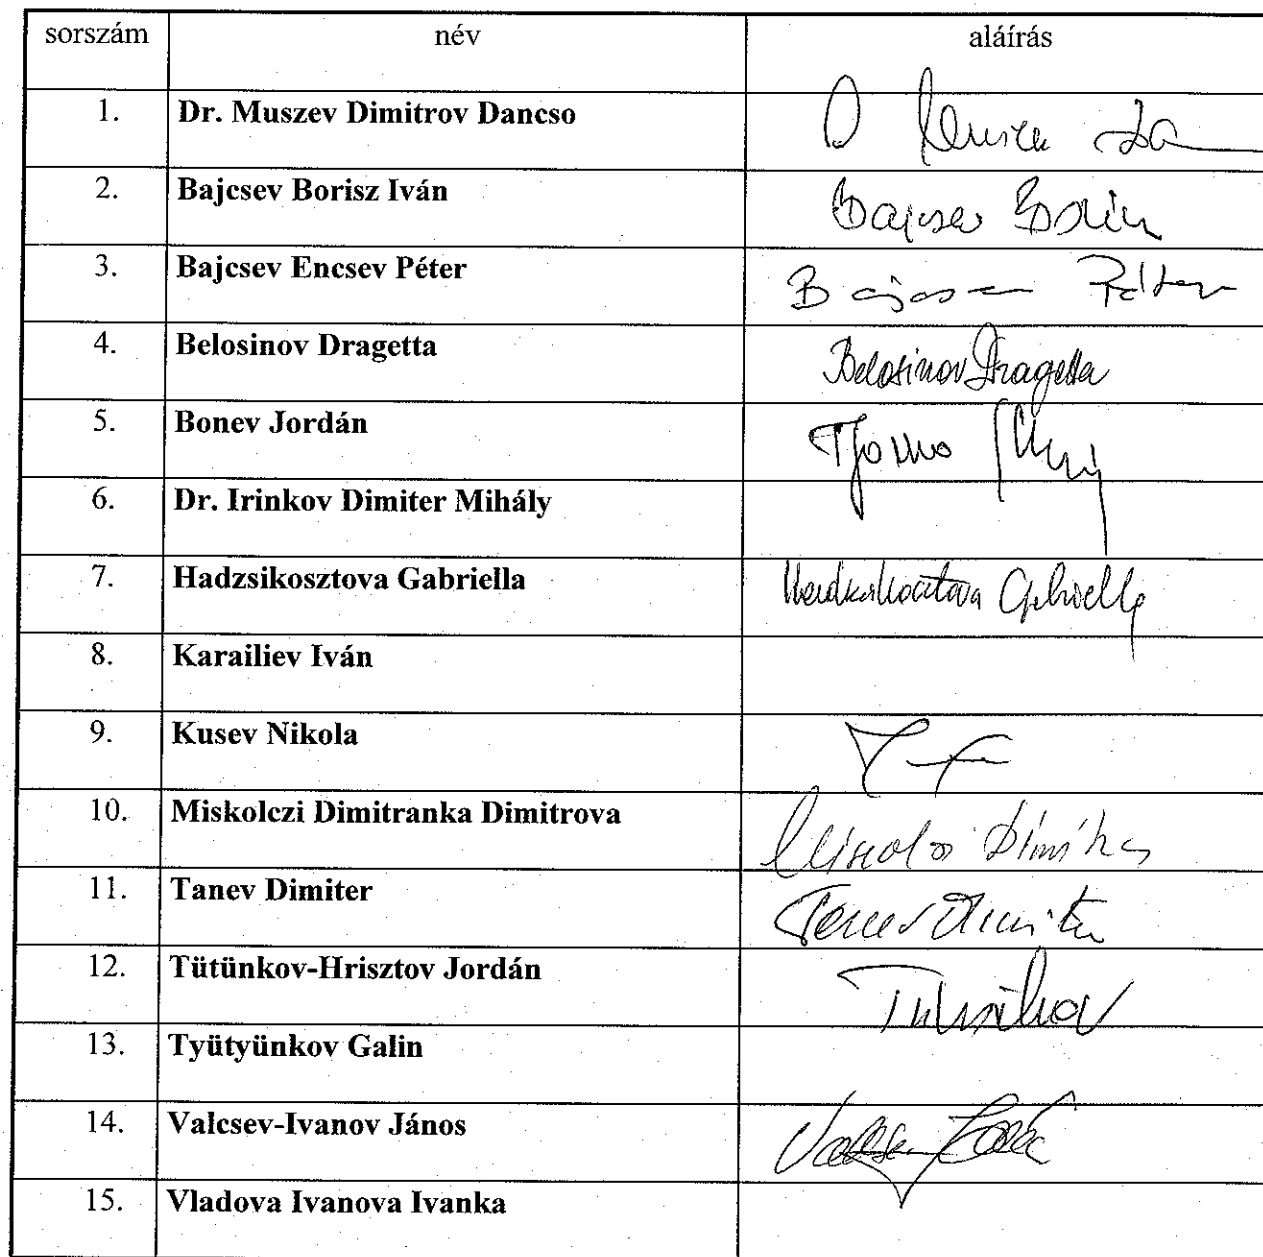 sorszám név aláírás
1. Dr. Muszev Dimitrov Dancso
2. Bajcsev Borisz Iván Bajcsev Borisz
3. Bajcsev Encsev Péter Bajcsev Péter
4. Belosinov Dragetta Belosinov Dragetta
5. Bonev Jordán
6. Dr. Irinkov Dimiter Mihály
7. Hadzsikosztova Gabriella Hadzsikosztova Gabriella
8. Karailiev Iván
9. Kusev Nikola
10. Miskolczi Dimitranka Dimitrova
11. Tanev Dimiter Tanev Dimiter
12. Tütünkov-Hrisztov Jordán
13. Tyütyünkov Galin
14. Valcsev-Ivanov János
15. Vladova Ivanova Ivanka